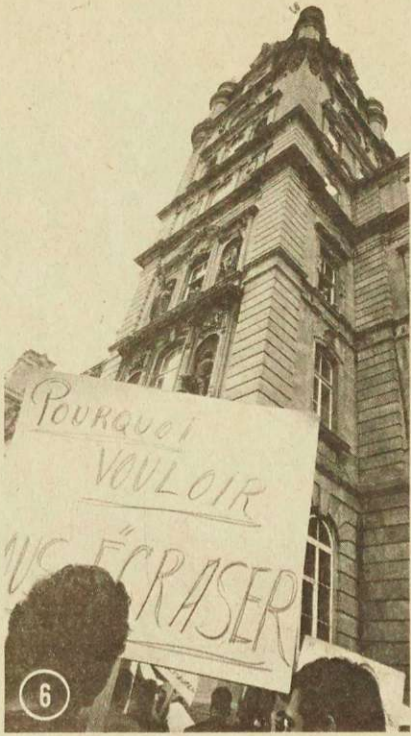 POURQUOI
VOULOIR
US "ÉCRASER
6